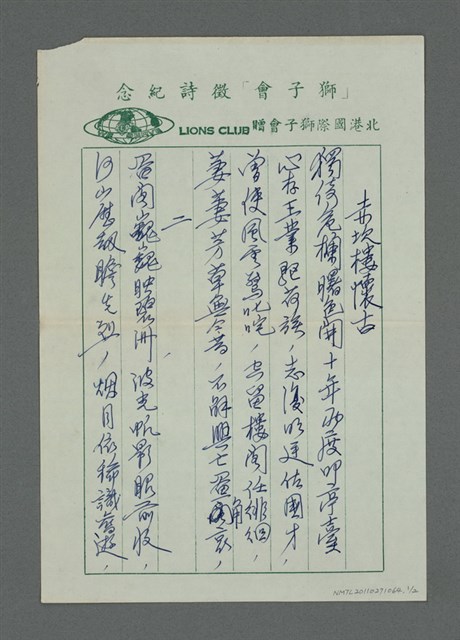 「獅子會」徵詩紀念
北港國際獅子會贈
LIONS CLUB
赤坎樓懷古
獨倚危欄曙色開十年兩度叩亭臺
心存王業驅荷族，志復明廷佐國才，
曾使風雲驚叱咤，空留樓閣任徘徊，
萋萋芳草無今昔，不解興亡畫角哀，
二
畫閣巍巍映碧洲，波光帆影眼前收，
河山歷劫瞻先烈，烟月依稀識舊遊，
NMTL20110271064 1/2